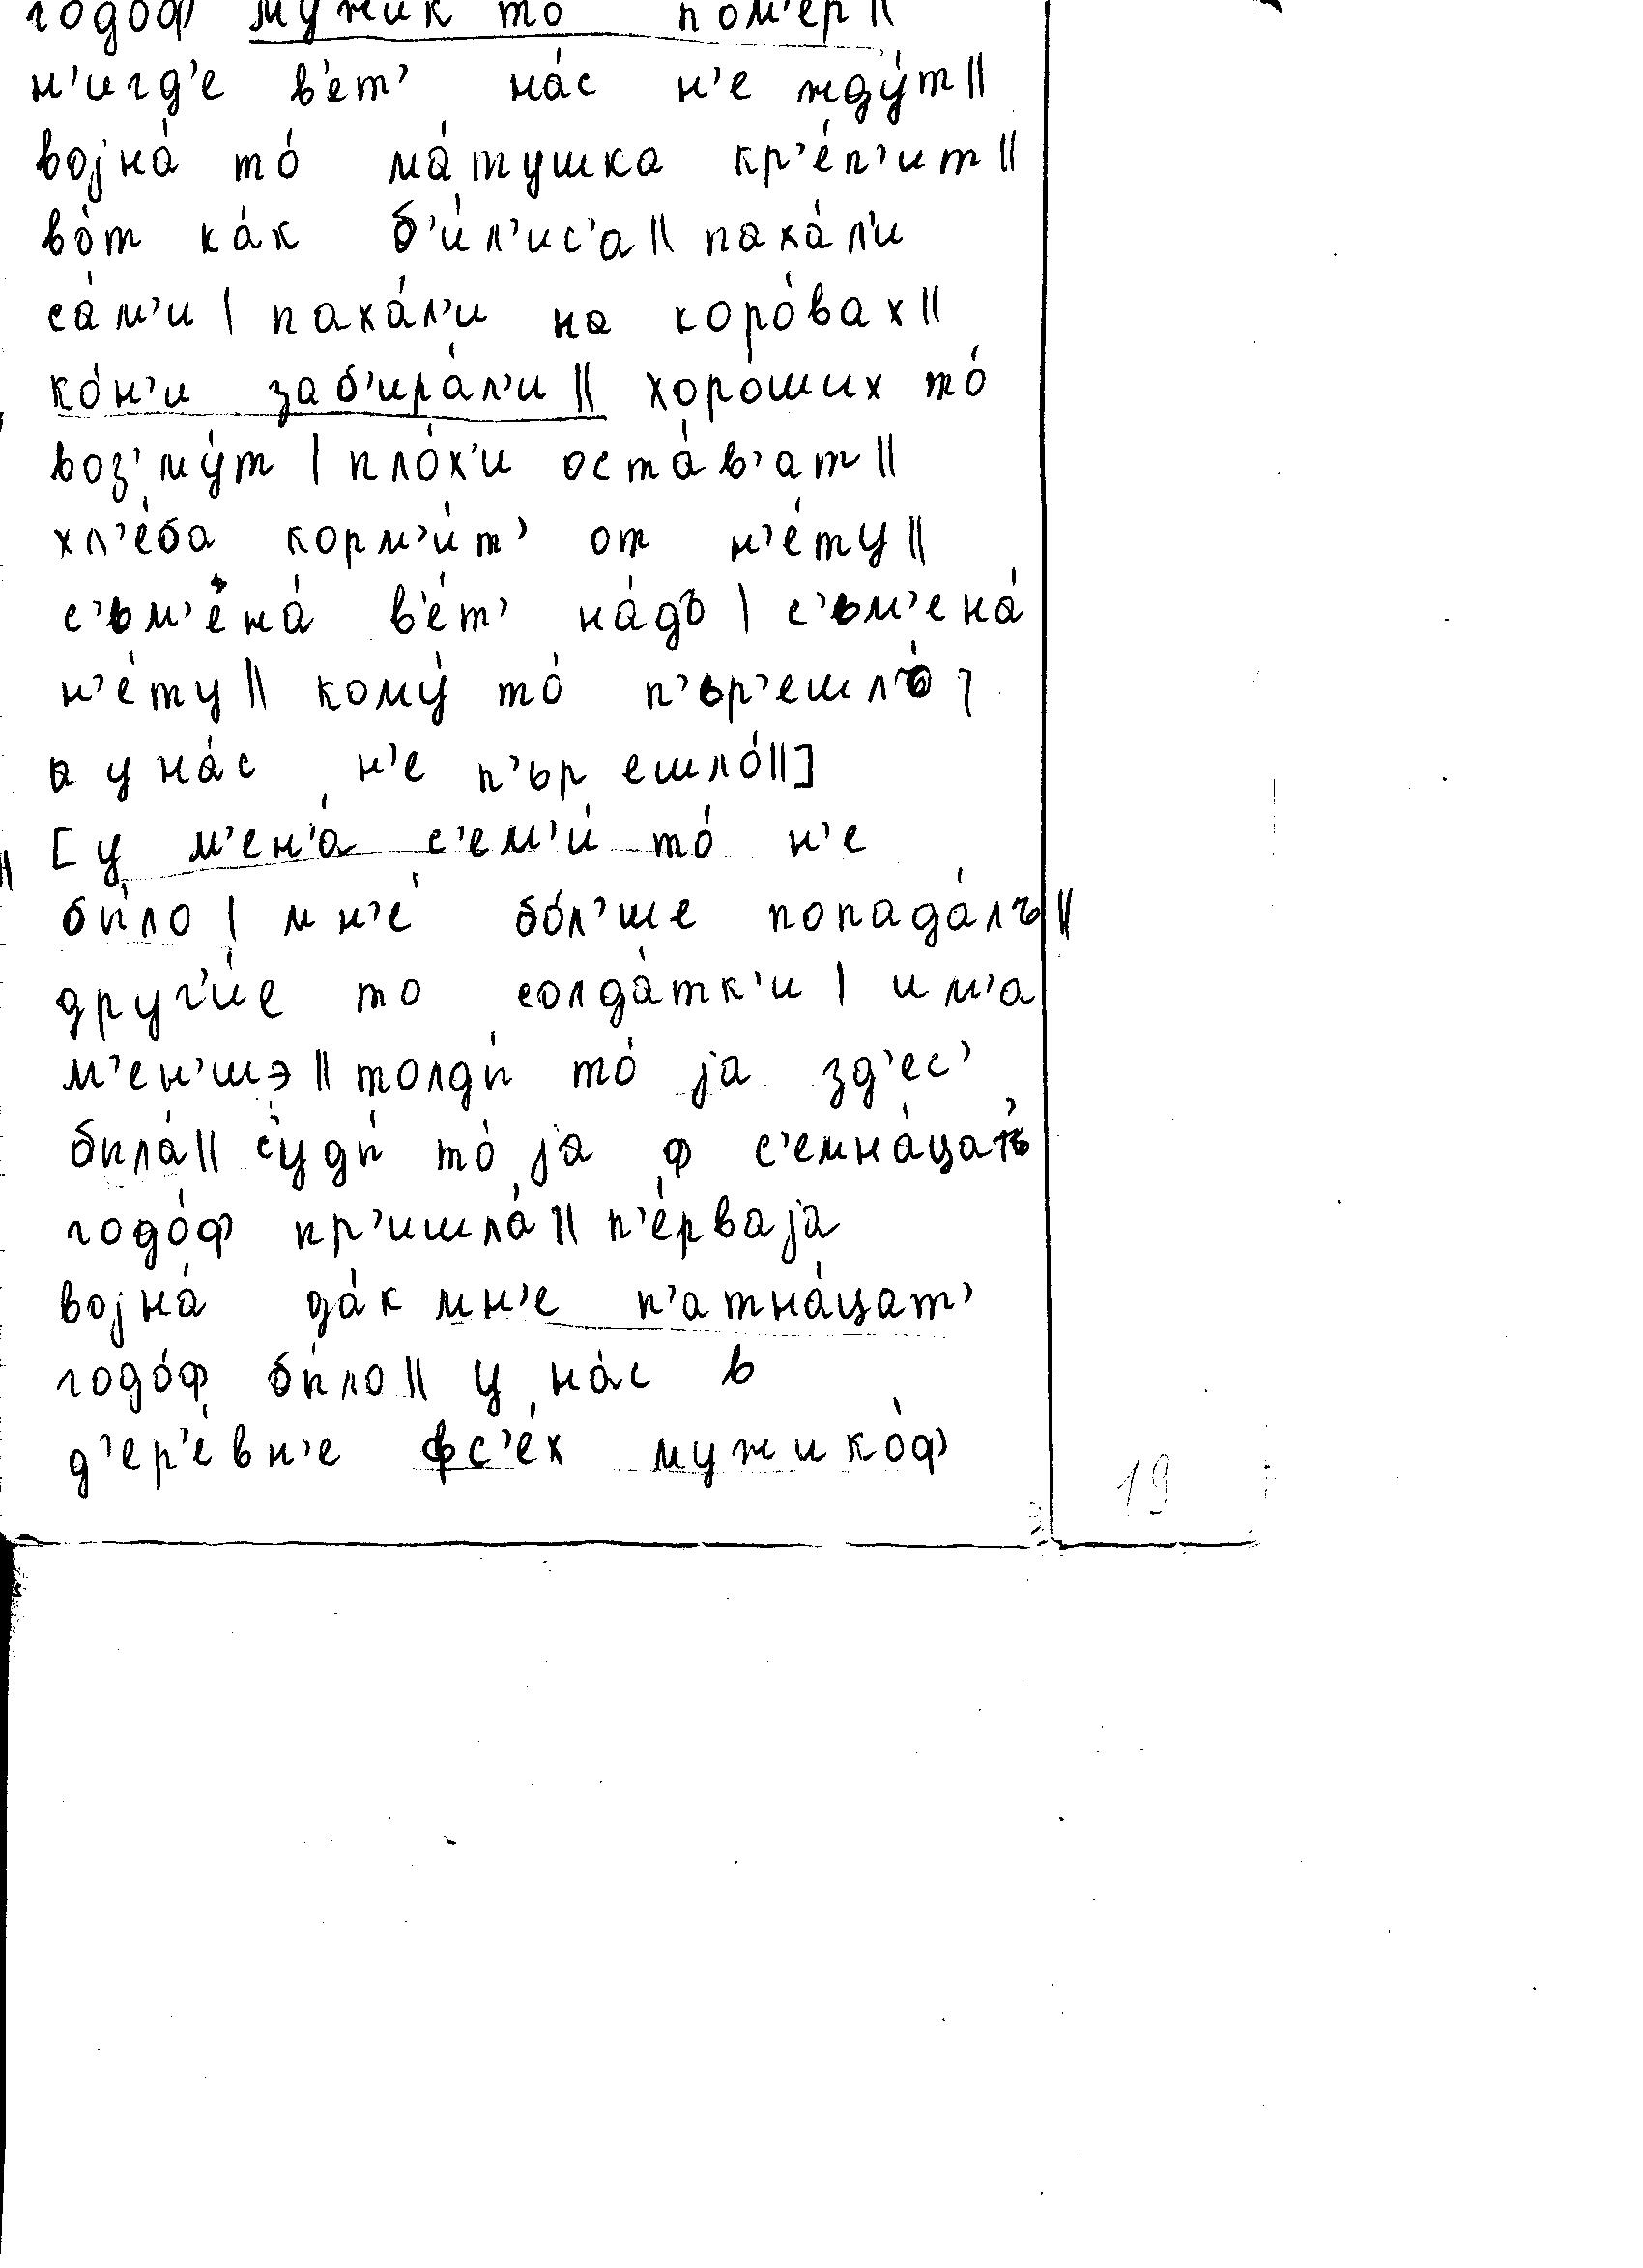 годоф мужик то пом'ер ||
н'игд'е в'ет' на́с н'е жду́т ||
војна́ то́ ма́тушка кр'е́п'ит ||
во́т ка́к б'и́л'ис'а || паха́л'и
са́м'и | паха́л'и на коро́вах ||
ко́н'и заб'ира́л'и || хоро́ших то́
воз'му́т | пло́х'и оста́в'ат ||
хл'е́ба корм'и́т' от н'е́ту ||
с'ъм'ена́ в'е́т' на́дъ | с'ьм'ена́
н'е́ту || кому́ то́ п'ьр'ешло́ ]
а у на́с н'е п'ьр ешло́ || ]
[ у м'ен'а́ с'ем'и́ то́ н'е
бы́ло | мн'е́ бо́л'ше попада́лъ ||
друг'и́е то солда́тк'и | им'а
м'ен'шэ || толды́ то́ ја зд'ес'
была́ || суды́ то́ ја ф с'емна́цат'
годо́ф пр'ишла́ || п'е́рваја
војна́ да́к мн'е п'атна́цат'
годо́ф бы́ло || у на́с в
д'ер'е́вн'е фс'е́х мужико́ф
19